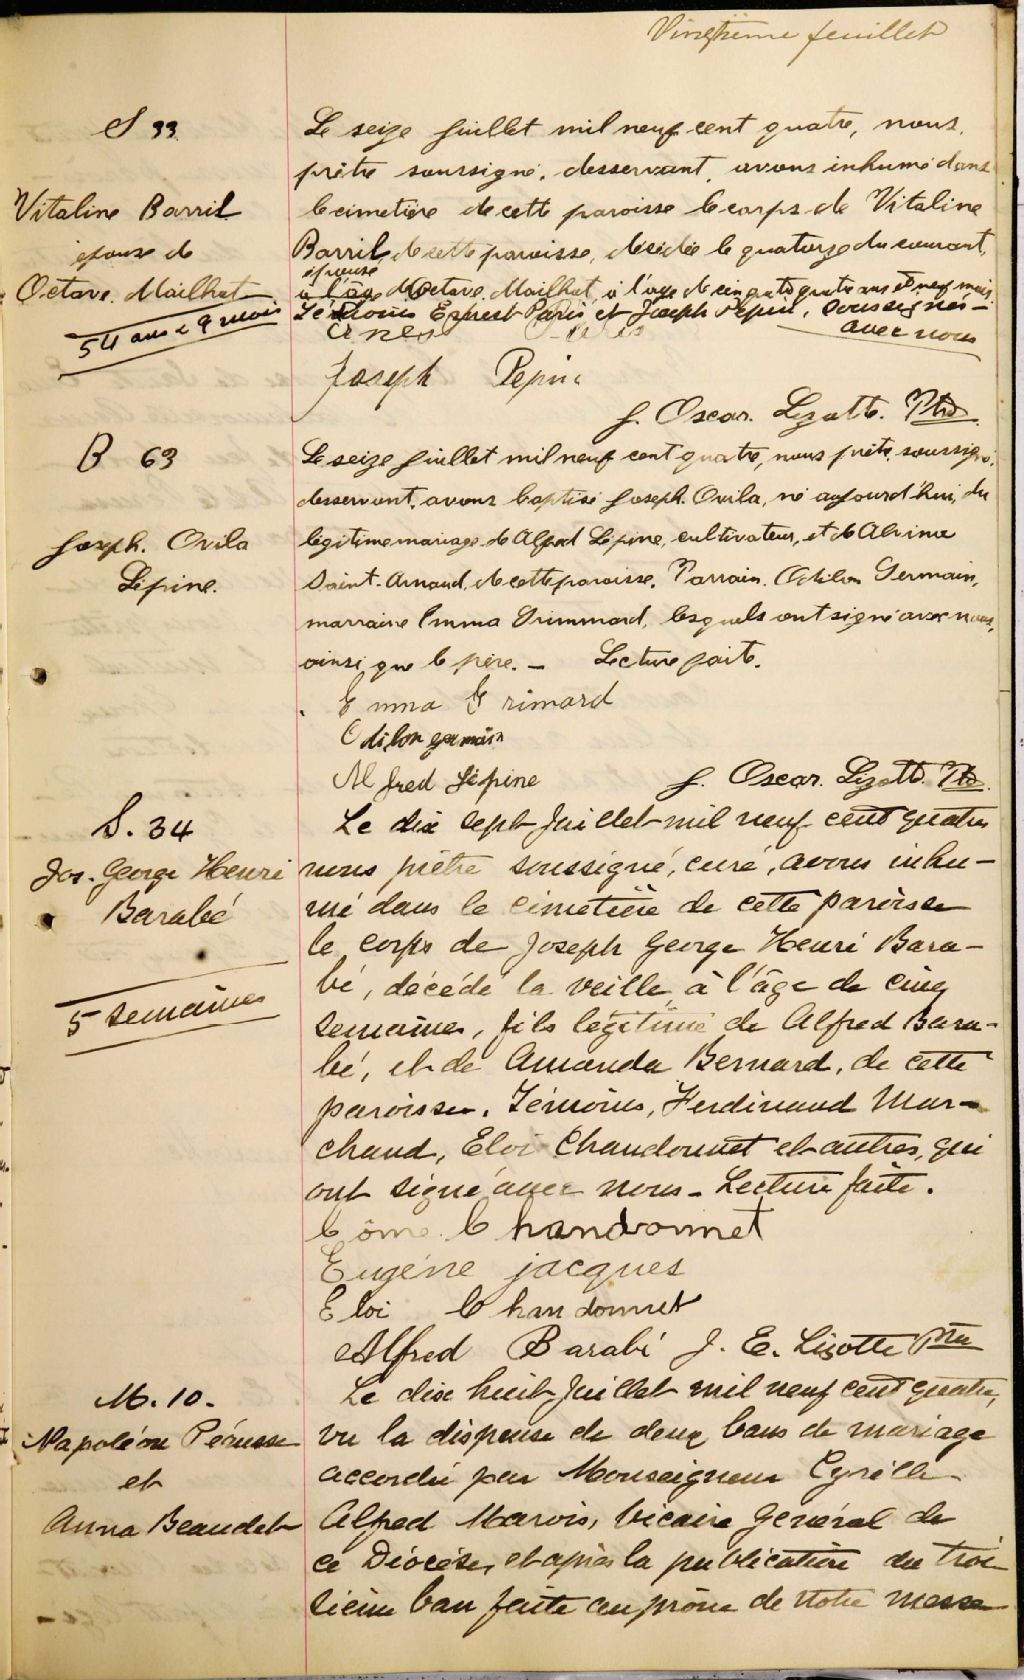 Vingtième feuillet
S 33
Vitaline Barril
épouse de
Octave Mailhot
54 ans & 9 mois
Le seize Juillet mil neuf cent quatre, nous,
prêtre soussigné, desservant, avons inhumé dans
le cimetière de cette paroisse le corps de Vitaline
Barril de cette paroisse, décédée le quatorze du courant,
épouse
à l'âge d'Octave Mailhot, à l'age de cinquante quatre ans et neuf mois
Témoins Ernest Paris et Joseph Pepin, soussignés
avec nous
Ernest Paris
Joseph Pepin
J. Oscar Lizotte. Ptre.
B 63
Joseph. Ovila
Lépine.
Le seize Juillet mil neuf cent quatre, nous prêtre soussigné,
desservant, avons baptisé Joseph. Ovila, né aujourd'hui, du
légitime mariage de Alfred Lépine, cultivateur, et de Alvina
Saint-Arnaud, de cette paroisse. Parrain, Odilon Germain,
marraine Emma Grimmard, lesquels ont signé avec nous,
ainsi que le père. — Lecture faite.
Emma Grimard
Odilon germain
Alfred Lépine J. Oscar Lizotte. Ptre.
S. 34
Jos. George Henri
Barabé
5 semaines
Le dix sept Juillet mil neuf cent quatre
nous prêtre soussigné, curé, avons inhu-
mé dans le cimetière de cette paroisse
le corps de Joseph George Henri Bara-
bé, décédé la veille à l'âge de cinq
semaines, fils légitime de Alfred Bara-
bé, et de Amanda Bernard, de cette
paroisse. Témoins, Ferdinand Mar-
chand, Eloi Chandonnet et autres, qui
ont signé avec nous - Lecture faite.
Côme Chandonnet
Eugène jacques
Eloi Chandonnet
Alfred Barabé J. E. Lizotte Ptre
M. 10.
Napoléon Pérusse
et
Anna Beaudet
Le dix huit Juillet mil neuf cent quatre,
vu la dispense de deux bans de mariage
accordée par Monseigneur Cyrille
Alfred Marois, Vicaire Général de
ce Diocèse, et après la publication du troi-
sième ban faite au prône de notre messe